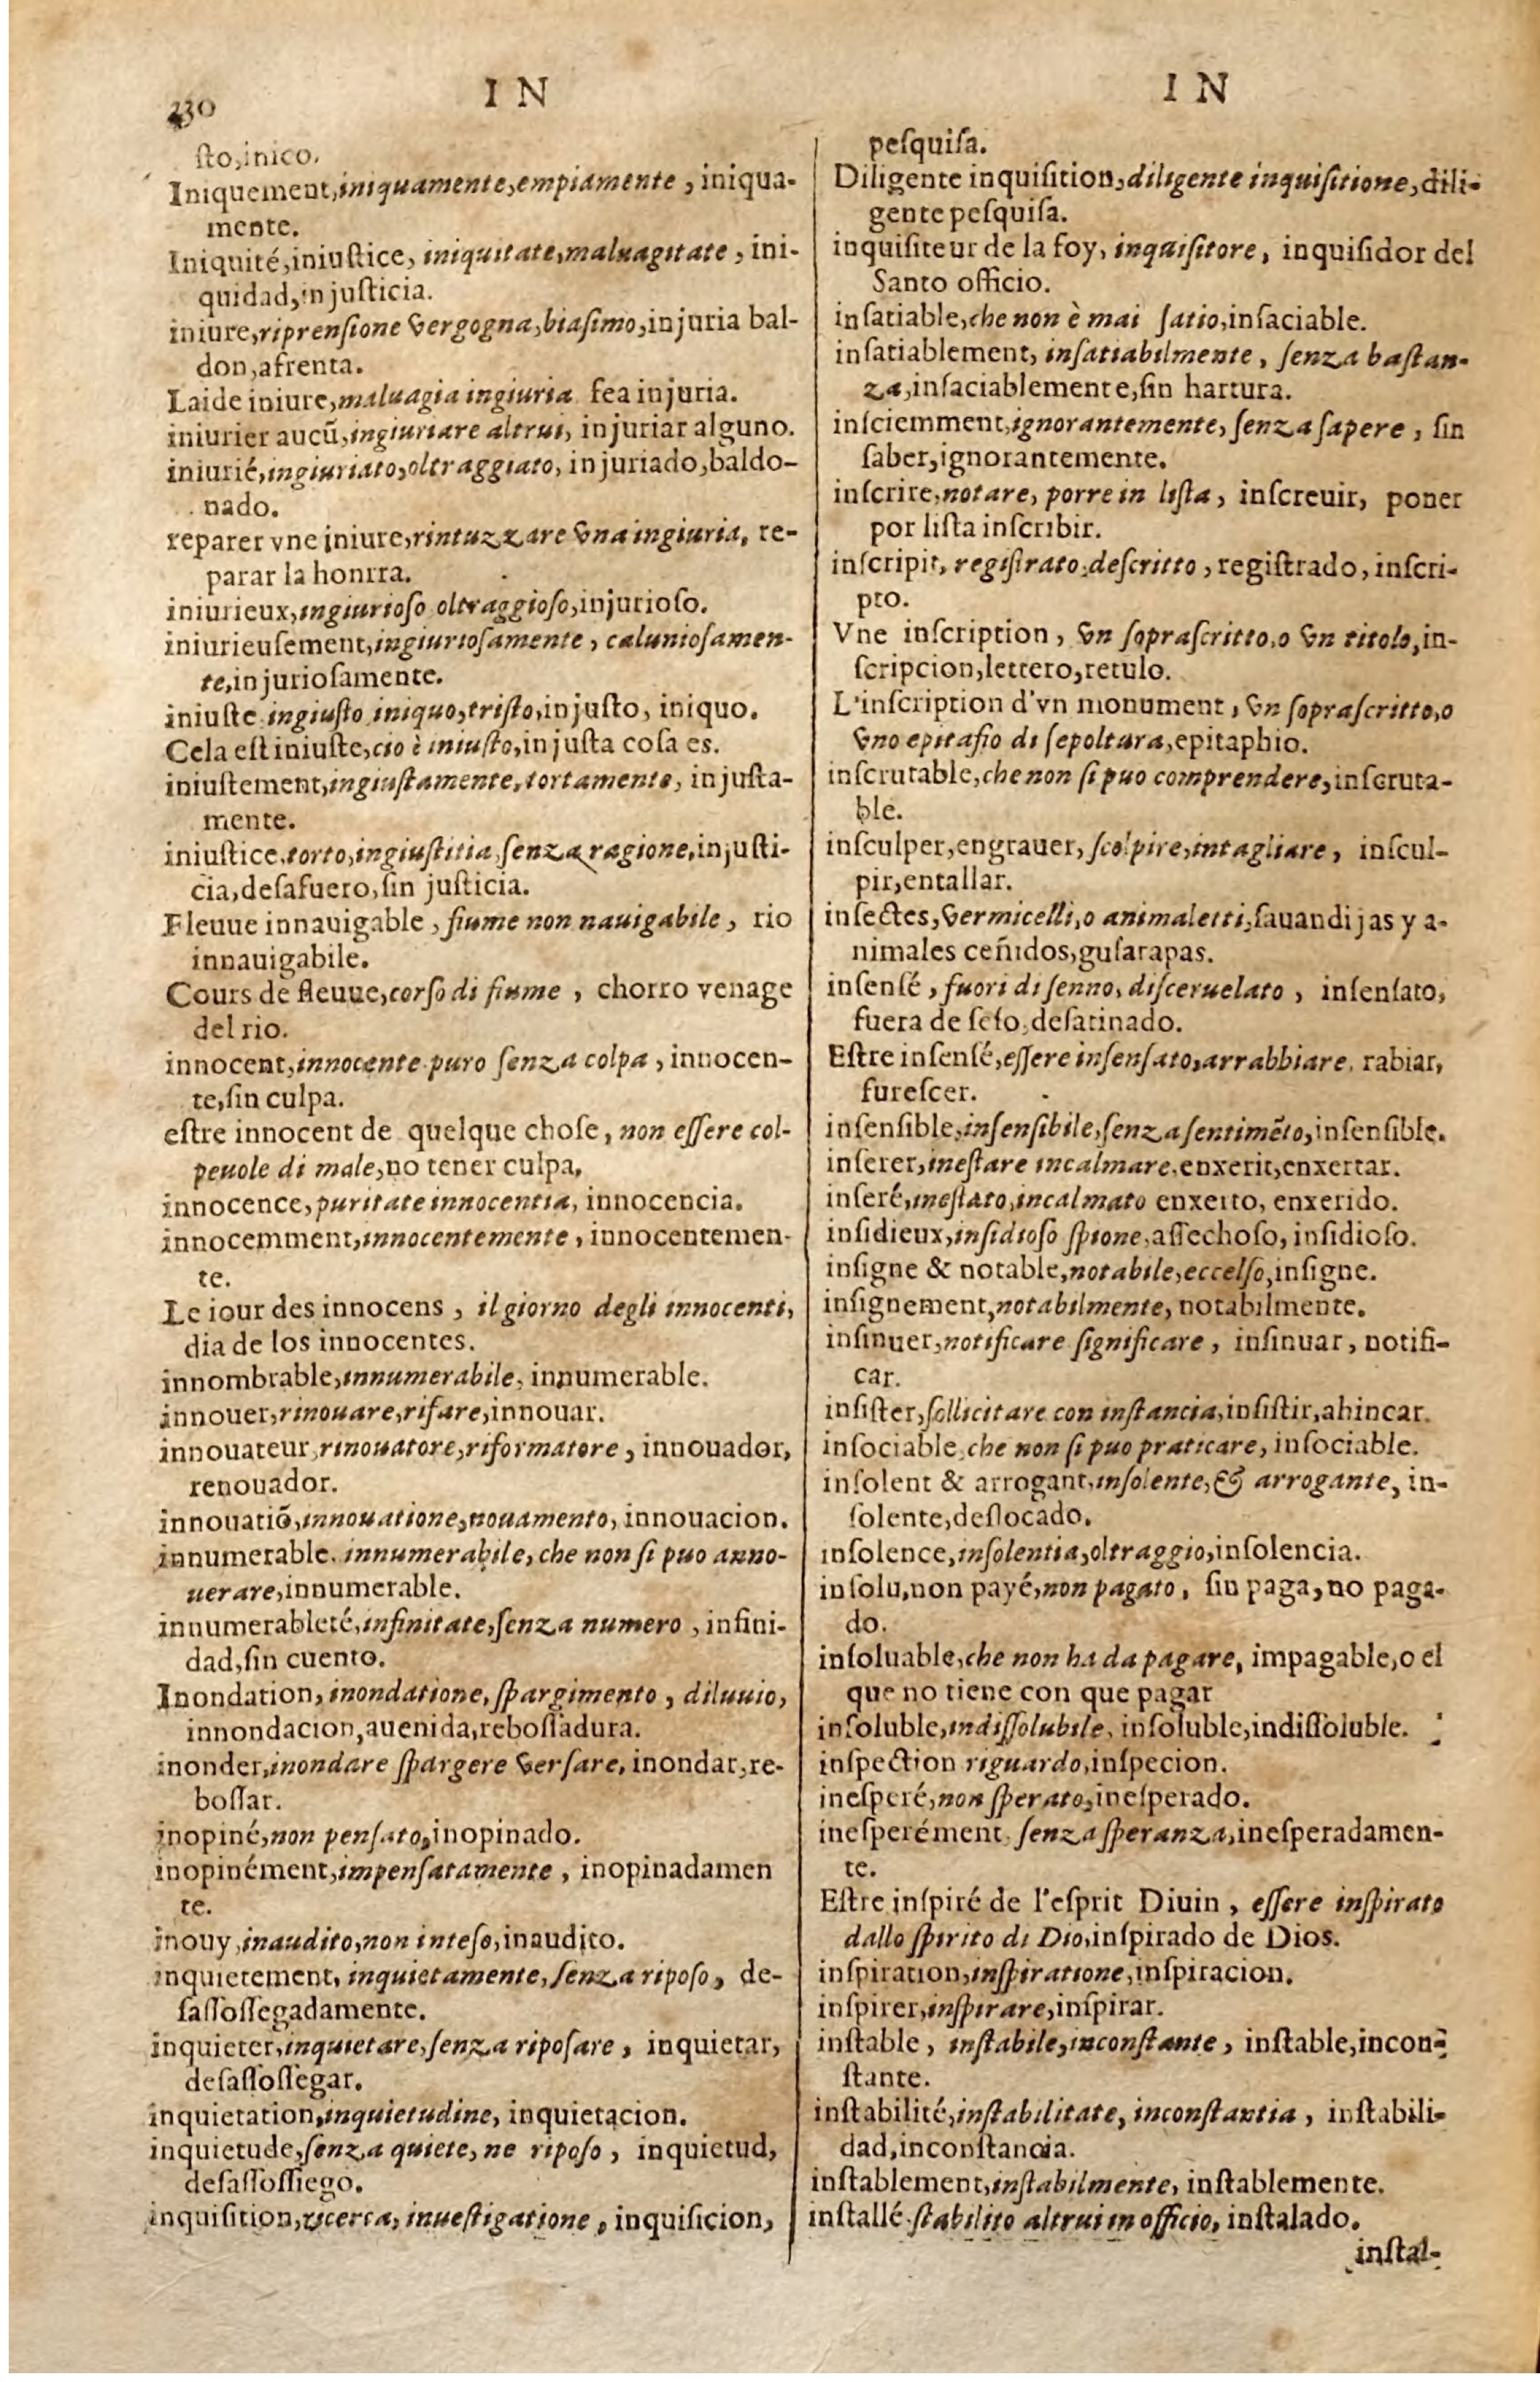 330
I N
ſto,inico.
Iniquement,iniquamente,empiamente , iniqua-
mente.
Iniquité,iniuſtice, iniquitate,maluagitate , ini-
quidad,injuſticia.
iniure,riprenſione vergogna,biaſimo,injuria bal-
don,afrenta.
Laide iniure,maluagia ingiuria fea injuria.
iniurier aucũ,ingiuriare altrui, injuriar alguno.
iniurié,ingiuriato,oltraggiato, injuriado,baldo-
nado.
reparer vne iniure,rintuzzare vna ingiuria, re-
parar la honrra.
iniurieux,ingiurioſo oltraggioſo,injurioſo.
iniurieuſement,ingiurioſamente , calunioſamen-
te,injurioſamente.
iniuſte ingiuſto iniquo,triſto,injuſto, iniquo.
Cela eſt iniuſte,cio è iniuſto,injuſta coſa es.
iniuſtement,ingiuſtamente,tortamente, injuſta-
mente.
iniuſtice,torto,ingiuſtitia,ſenza ragione,injuſti-
cia,deſafuero,ſin juſticia.
Fleuue innauigable , fiume non nauigabile , rio
innauigabile.
Cours de fleuue,corſo di fiume , chorro venage
del rio.
innocent,innocente puro ſenza colpa , innocen-
te,ſin culpa.
eſtre innocent de quelque choſe, non eſſere col-
peuole di male,no tener culpa.
innocence,puritate innocentia, innocencia.
innocemment,innocentemente , innocentemen-
te.
Le iour des innocens , il giorno degli innocenti,
dia de los innocentes.
innombrable,innumerabile, innumerable.
innouer,rinouare,rifare,innouar.
innouateur,rinouatore,riformatore , innouador,
renouador.
innouatiõ,innouatione,nouamento, innouacion.
innumerable, innumerabile, che non ſi puo anno-
uerare,innumerable.
innumerableté,infinitate,ſenza numero , infini-
dad,ſin cuento.
Inondation, inondatione, ſpargimento , diluuio,
innondacion,auenida,reboſſadura.
inonder,inondare ſpargere verſare, inondar,re-
boſſar.
inopiné,non penſato,inopinado.
inopinément,impenſatamente , inopinadamen
te.
inouy,inaudito,non inteſo,inaudito.
inquietement, inquietamente, ſenza ripoſo, de-
ſaſſoſſegadamente.
inquieter,inquietare,ſenza ripoſare , inquietar,
deſaſſoſſegar.
inquietation,inquietudine, inquietacion.
inquietude,ſenza quiete, ne ripoſo , inquietud,
deſaſſoſſiego.
inquiſition,ricerca, inueſtigatione , inquiſicion,
I N
peſquiſa.
Diligente inquiſition,diligente inquiſitione,dili-
gente peſquiſa.
inquiſiteur de la foy, inquiſitore, inquiſidor del
Santo officio.
inſatiable,che non è mai ſatio,inſaciable.
inſatiablement, inſatiabilmente , ſenza baſtan-
za,inſaciablemente,ſin hartura.
inſciemment,ignorantemente, ſenza ſapere , ſin
ſaber,ignorantemente.
inſcrire,notare, porre in liſta , inſcreuir, poner
por liſta inſcribir.
inſcripit, regiſtrato,deſcritto , regiſtrado, inſcri-
pto.
Vne inſcription , vn ſopraſcritto,o vn titolo,in-
ſcripcion,lettero,retulo.
L'inſcription d'vn monument , vn ſopraſcritto,o
vno epitafio di ſepoltura,epitaphio.
inſcrutable,che non ſi puo comprendere,inſcruta-
ble.
inſculper,engrauer, ſcolpire,intagliare, inſcul-
pir,entallar.
inſectes, vermicelli,o animaletti,ſauandijas y a-
nimales ceñidos,guſarapas.
inſenſé , fuori di ſenno, diſceruelato , inſenſato,
fuera de ſeſo,deſatinado.
Eſtre inſenſé,eſſere inſenſato,arrabbiare, rabiar,
fureſcer.
inſenſible,inſenſibile,ſenza ſentimẽto,inſenſible.
inſerer,ineſtare incalmare,enxerir,enxertar.
inſeré,ineſtato,incalmato enxerto, enxerido.
inſidieux,inſidioſo ſpione,aſſechoſo, inſidioſo.
inſigne & notable,notabile,eccelſo,inſigne.
inſignement,notabilmente, notabilmente.
inſinuer,notificare ſignificare , inſinuar, notifi-
car.
inſiſter,ſollicitare con inſtancia,inſiſtir,ahincar.
inſociable,che non ſi puo praticare, inſociable.
inſolent & arrogant,inſolente,& arrogante, in-
ſolente,deſlocado.
inſolence,inſolentia,oltraggio,inſolencia.
inſolu,non payé,non pagato, ſin paga,no paga-
do.
inſoluable,che non ha da pagare, impagable,o el
que no tiene con que pagar
inſoluble,indiſſolubile, inſoluble,indiſſoluble.
inſpection riguardo,inſpecion.
ineſperé,non ſperato,ineſperado.
ineſperément ſenza ſperanza,ineſperadamen-
te.
Eſtre inſpiré de l'eſprit Diuin , eſſere inſpirato
dallo ſpirito di Dio,inſpirado de Dios.
inſpiration,inſpiratione,inſpiracion.
inſpirer,inſpirare,inſpirar.
inſtable , inſtabile,inconſtante , inſtable,incon-
ſtante.
inſtabilité,inſtabilitate, inconſtantia , inſtabili-
dad,inconſtancia.
inſtablement,inſtabilmente, inſtablemente.
inſtallé ſtabilito altrui in officio, inſtalado.
inſtal-